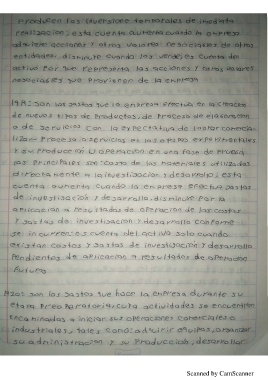 producen las inversiones temporales de inmediata
realización; esta cuenta aumenta cuando la empresa
adquiere acciones y otros valores negociables de otras
entidades, disminuye cuando los vende, es cuenta de
activo por que representa las acciones y otros valores
negociables que provienen de la empresa
son los gastos que la empresa efectua en la
de nuevos tipos de productos, de proceso de elaboracion
o de servicios con la expectativa de
proceso o servicios en plantas experimentales
y su produccion u operación en una fase de prueba
las principales son: costo de los materiales utilizados
directamente a la investigacion y desarrollo; esta
cuenta aumenta cuando la empresa efectua gastos
de investigación y desarrollo, disminuye por la
aplicacion a resultados de operación de los costos
y gastos de investigacion y desarrollo conforme
se incurren; es cuenta del activo solo cuando
existan costos y gastos de investigacion y desarrollo
Pendientes de aplicacion a resultados de operacion
Futura
son los gastos que hace la empresa durante su
etapa Preoperatoria; cuyas actividades se encuentran
encaminadas a iniciar sus operaciones comerciales o
industriales, tales como: adquirir equipos, organizar
su administracion y su producción, desarrollar
Scanned by CamScanner